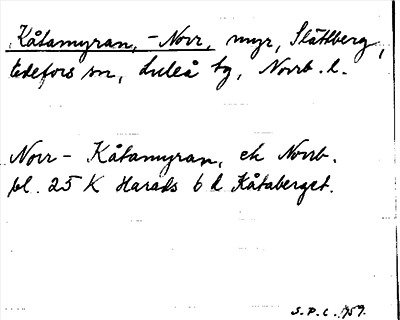 Kåtamyran, -Norr, myr, Slättberg,
Edefors sn, Luleå tg, Norrb. l.
Norr - Kåtamyran, ek Norrb.
bl. 25 K Harads 6 d Kåtaberget.
S.P.C. 1959.